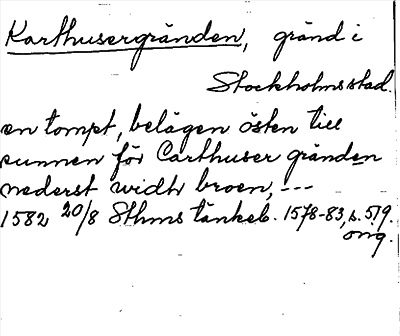 Karthusergränden, gränd i
Stockholms stad.
en tompt, belägen östen till
runnen för Carthuser gränden
nederst widh broen, ---
1582 20/8 Sthms tänkeb. 1578-83, s. 519.
orig.